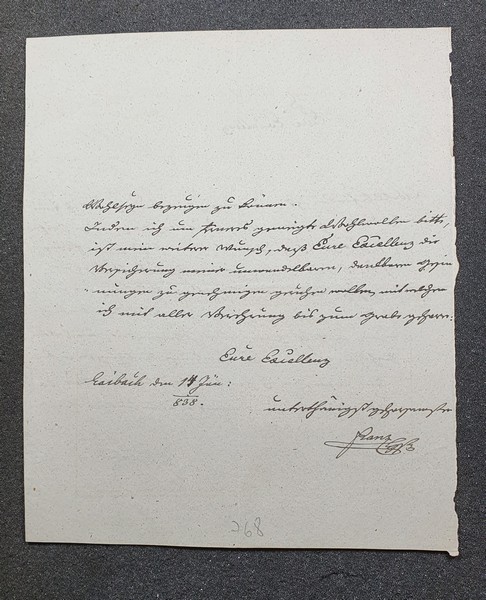 bezeugen zu können.
Indem ich um ferneres geneigtes Wohlwollen bitte,
ist mein weiterer Wunsch, daß Eure Excellenz die
Versicherung meiner unwandelbaren, dankbaren Gesin
nungen zu genehmigen geruhen wollen, mit welchen
ich mit aller Verehrung bis zum Grabe geharre:
Eure Excellenz
Laibach den 14 Jän:
838.
unterthänigst gehorsamster
Franz
768